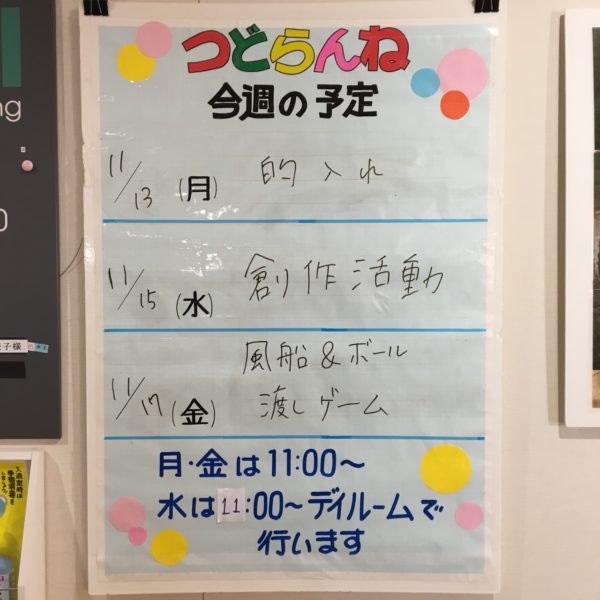 つどらんね
今週の予定
11/13 (月) 的入れ
11/15 (水) 創作活動
11/17 (金) 風船&ボール
渡しゲーム
月・金は11:00〜
水は11:00〜デイルームで
行います
ng
0
子様